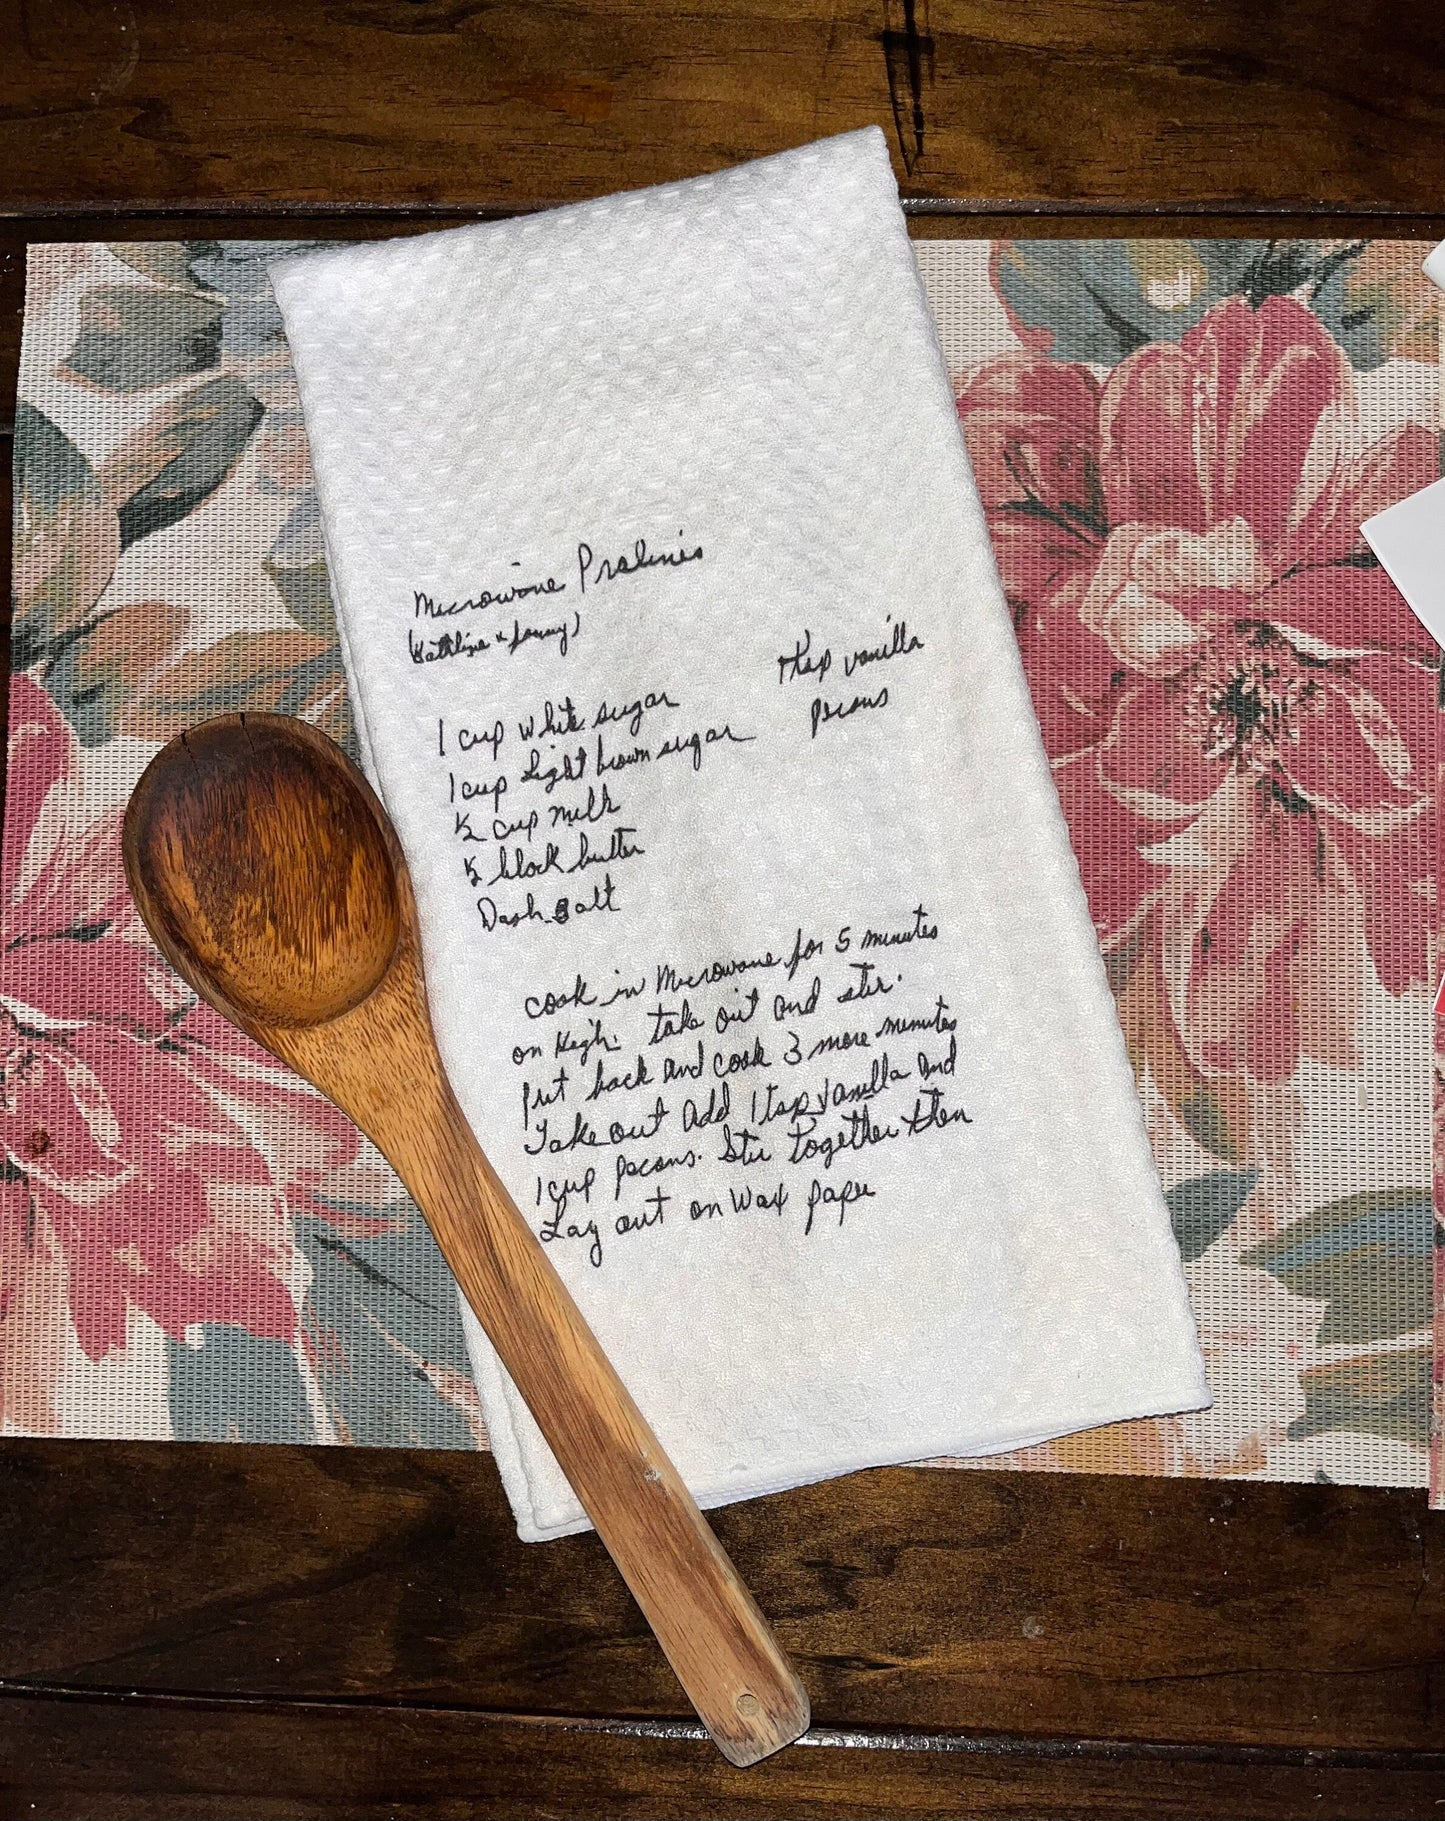 Microwave Pralines
(Kathline & Jonny)
1 cup white sugar
1 cup Light brown sugar
½ cup milk
½ block butter
Dash salt
1 tsp vanilla
pecans
cook in Microwave for 5 minutes
on High. take out and stir.
put back and cook 3 more minutes
Take out add 1 tsp vanilla and
1 cup pecans. Stir together then
Lay out on wax paper